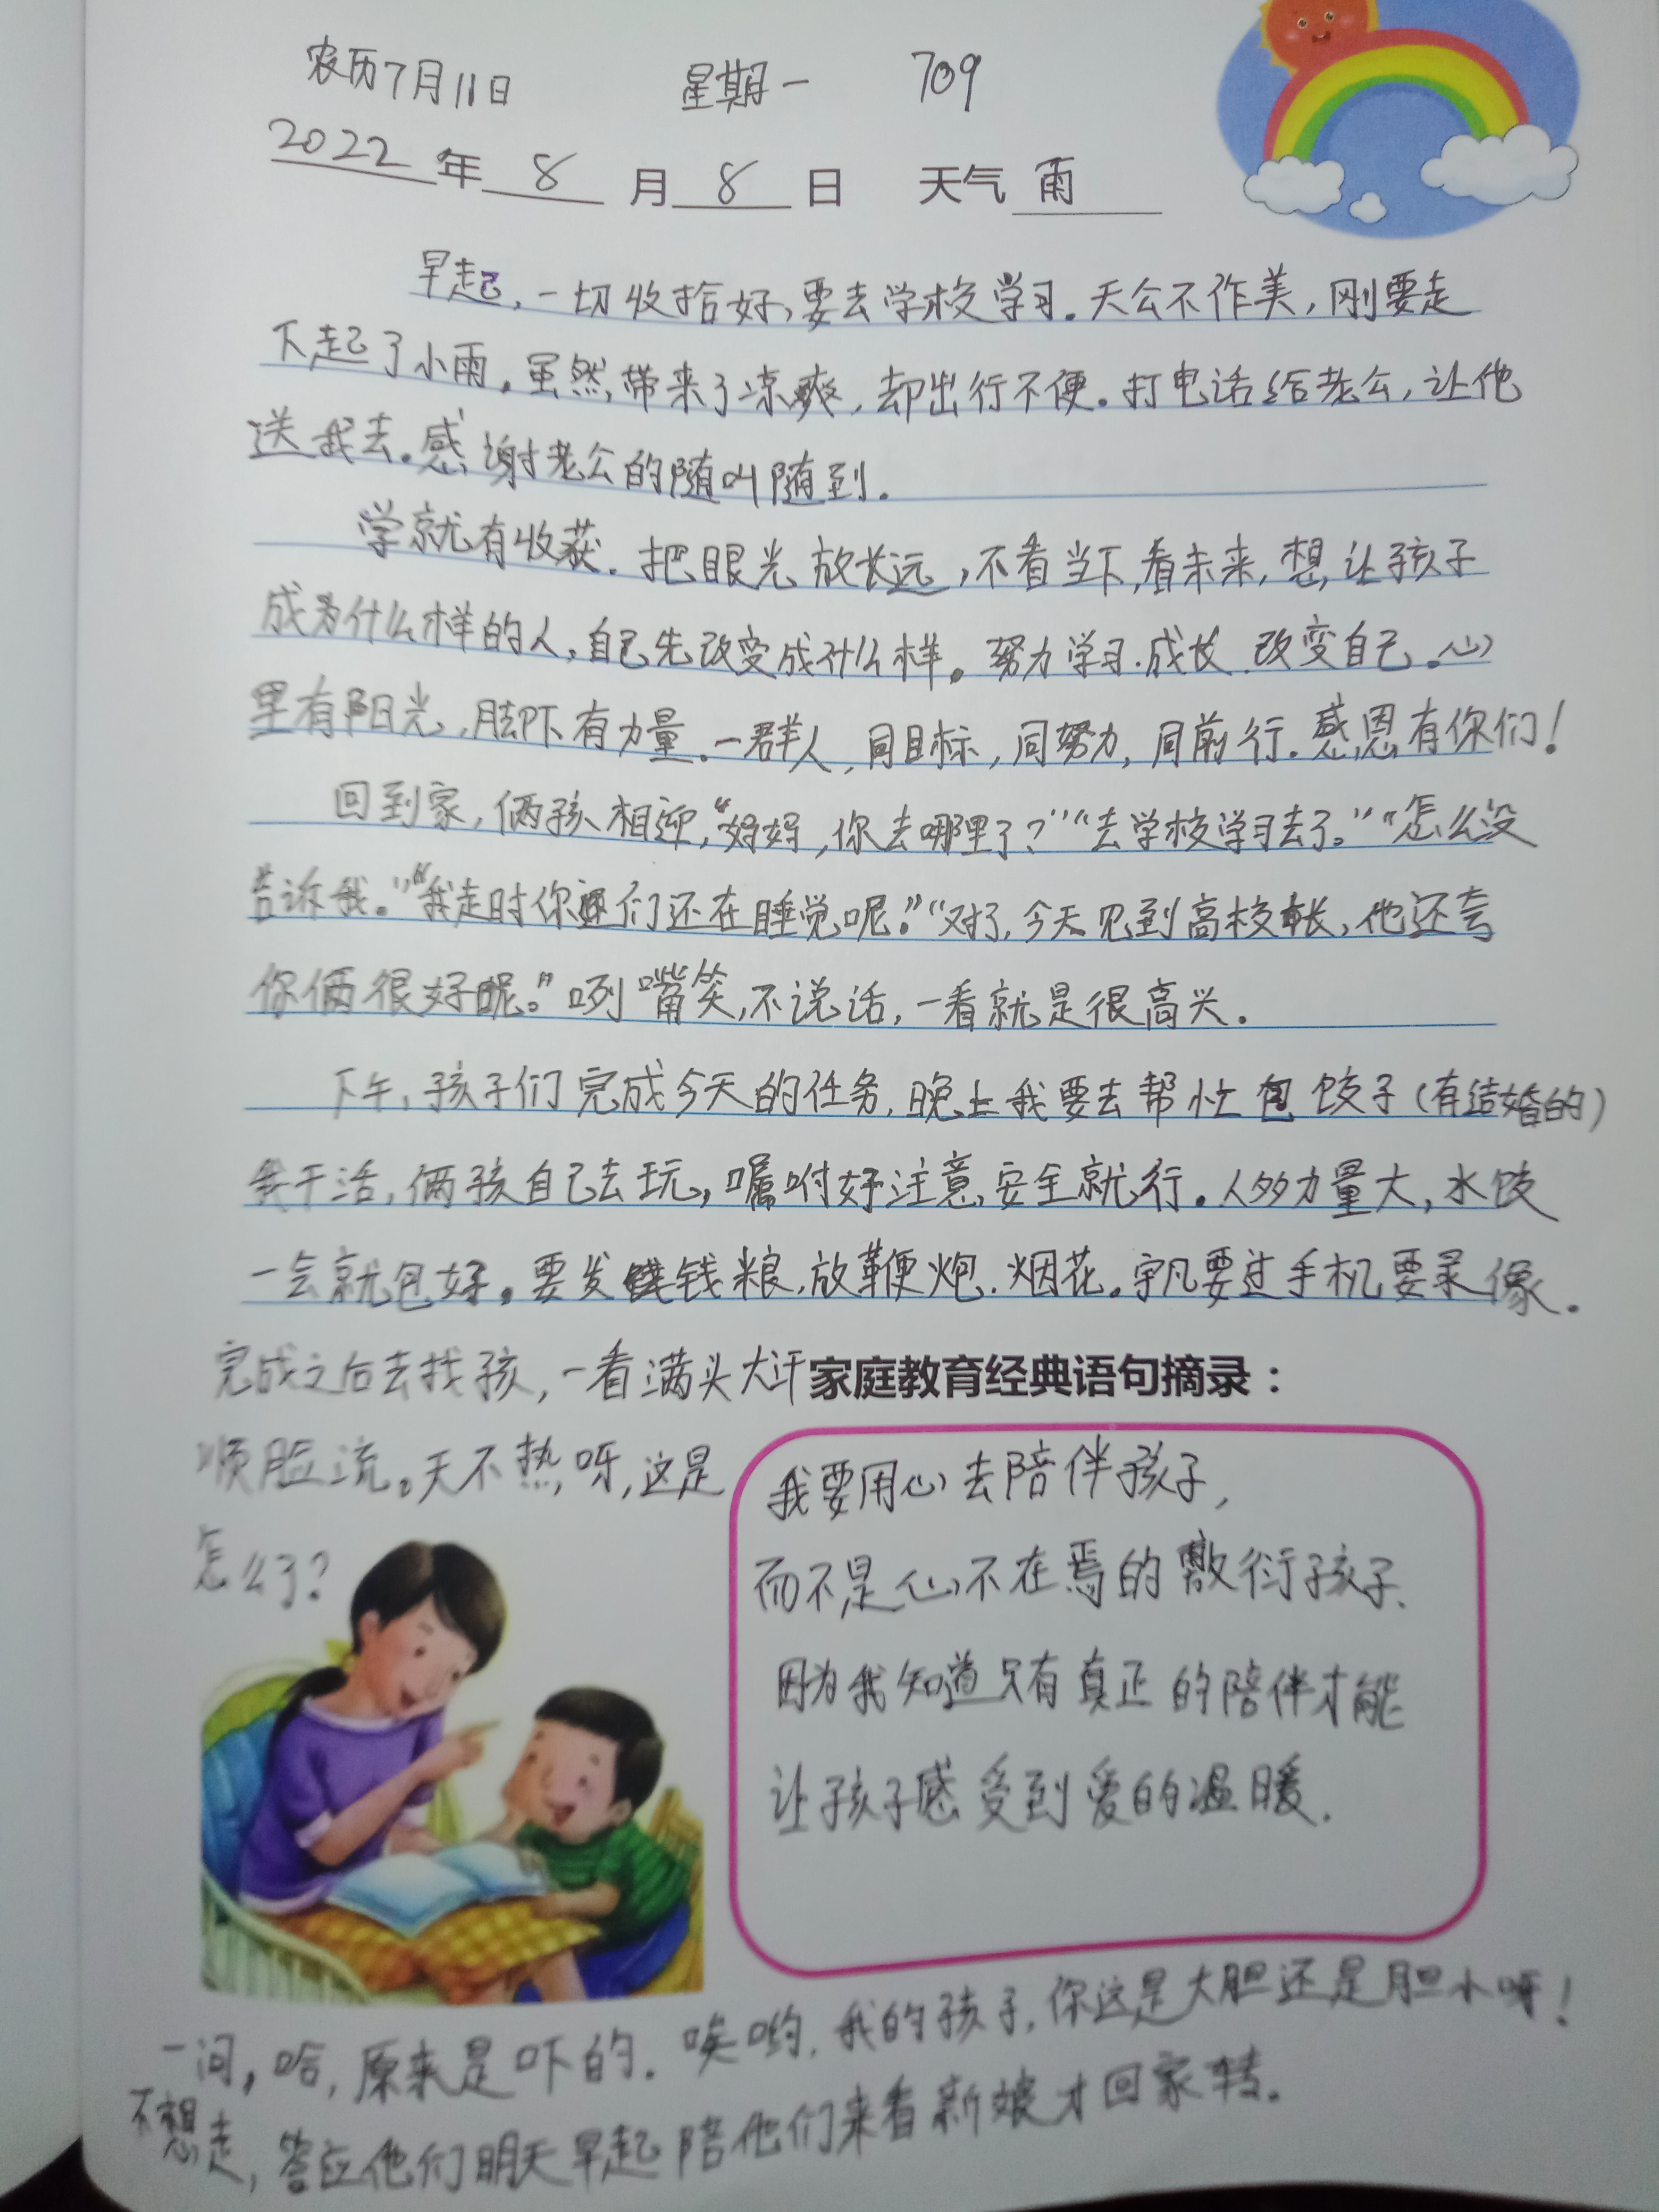 农历7月11日 星期一 709
2022年8月8日 天气雨
早起,一切收拾好,要去学校学习。天公不作美,刚要走
下起了小雨。虽然带来了凉爽,却出行不便。打电话给老公,让他
送我去。感谢老公的随叫随到。
学就有收获。把眼光放长远,不看当下,看未来,想让孩子
成为什么样的人,自己先改变成什么样。努力学习.成长.改变自己。心
里有阳光,脚下有力量。一群人,同目标,同努力,同前行。感恩有你们!
回到家,俩孩相迎,“妈妈,你去哪里了?”“去学校学习去了。”“怎么没
告诉我。”“我走时你们还在睡觉呢。”“对了,今天见到高校长,他还夸
你俩很好呢。”咧嘴笑,不说话,一看就是很高兴。
下午,孩子们完成今天的任务,晚上我要去帮忙包饺子(有结婚的)
我干活,俩孩自己去玩,嘱咐好注意安全就行。人多力量大,水饺
一会就包好。要发钱粮,放鞭炮.烟花。宇凡要过手机要录像。
完成之后去找孩,一看满头大汗
顺脸流。天不热呀,这是
怎么了?
家庭教育经典语句摘录:
我要用心去陪伴孩子,
而不是心不在焉的敷衍孩子、
因为我知道只有真正的陪伴才能
让孩子感受到爱的温暖.
一问,哈,原来是吓的.唉哟,我的孩子,你这是大胆还是胆小呀!
不想走,答应他们明天早起陪他们来看新娘才回家转。